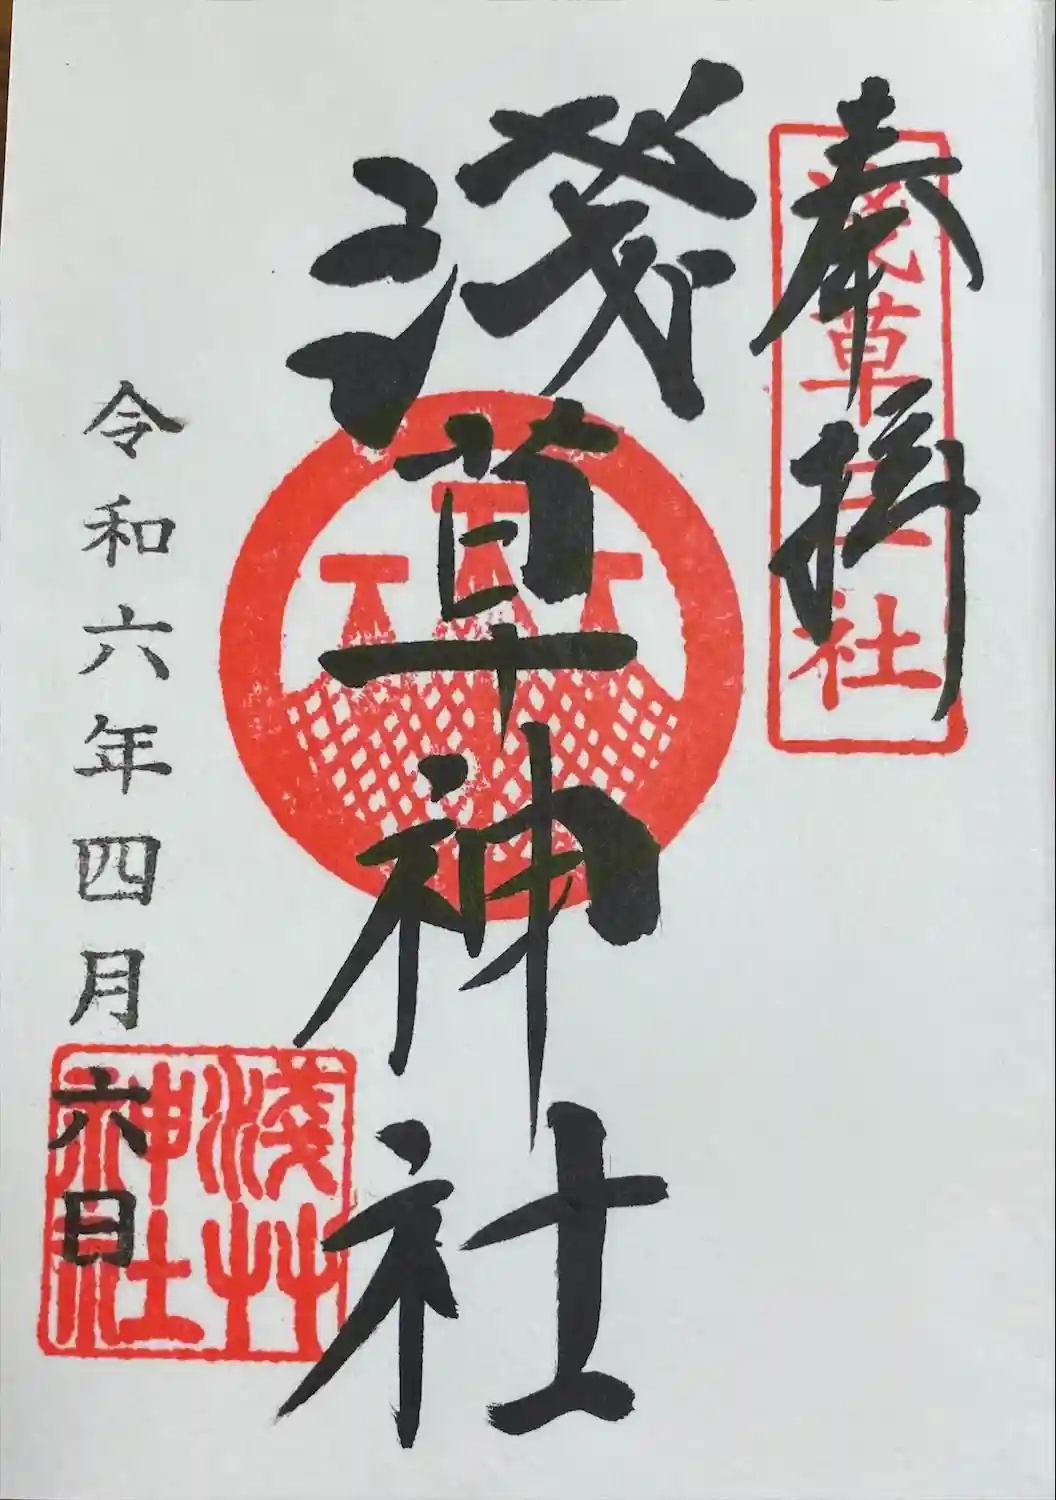 奉拝
浅草三社
淺草神社
令和六年四月六日
淺艸神社